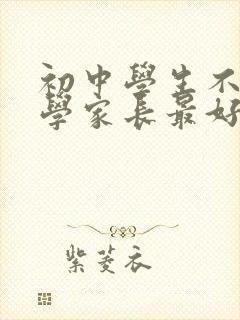 初中學生不
學家長最好
紫菱衣